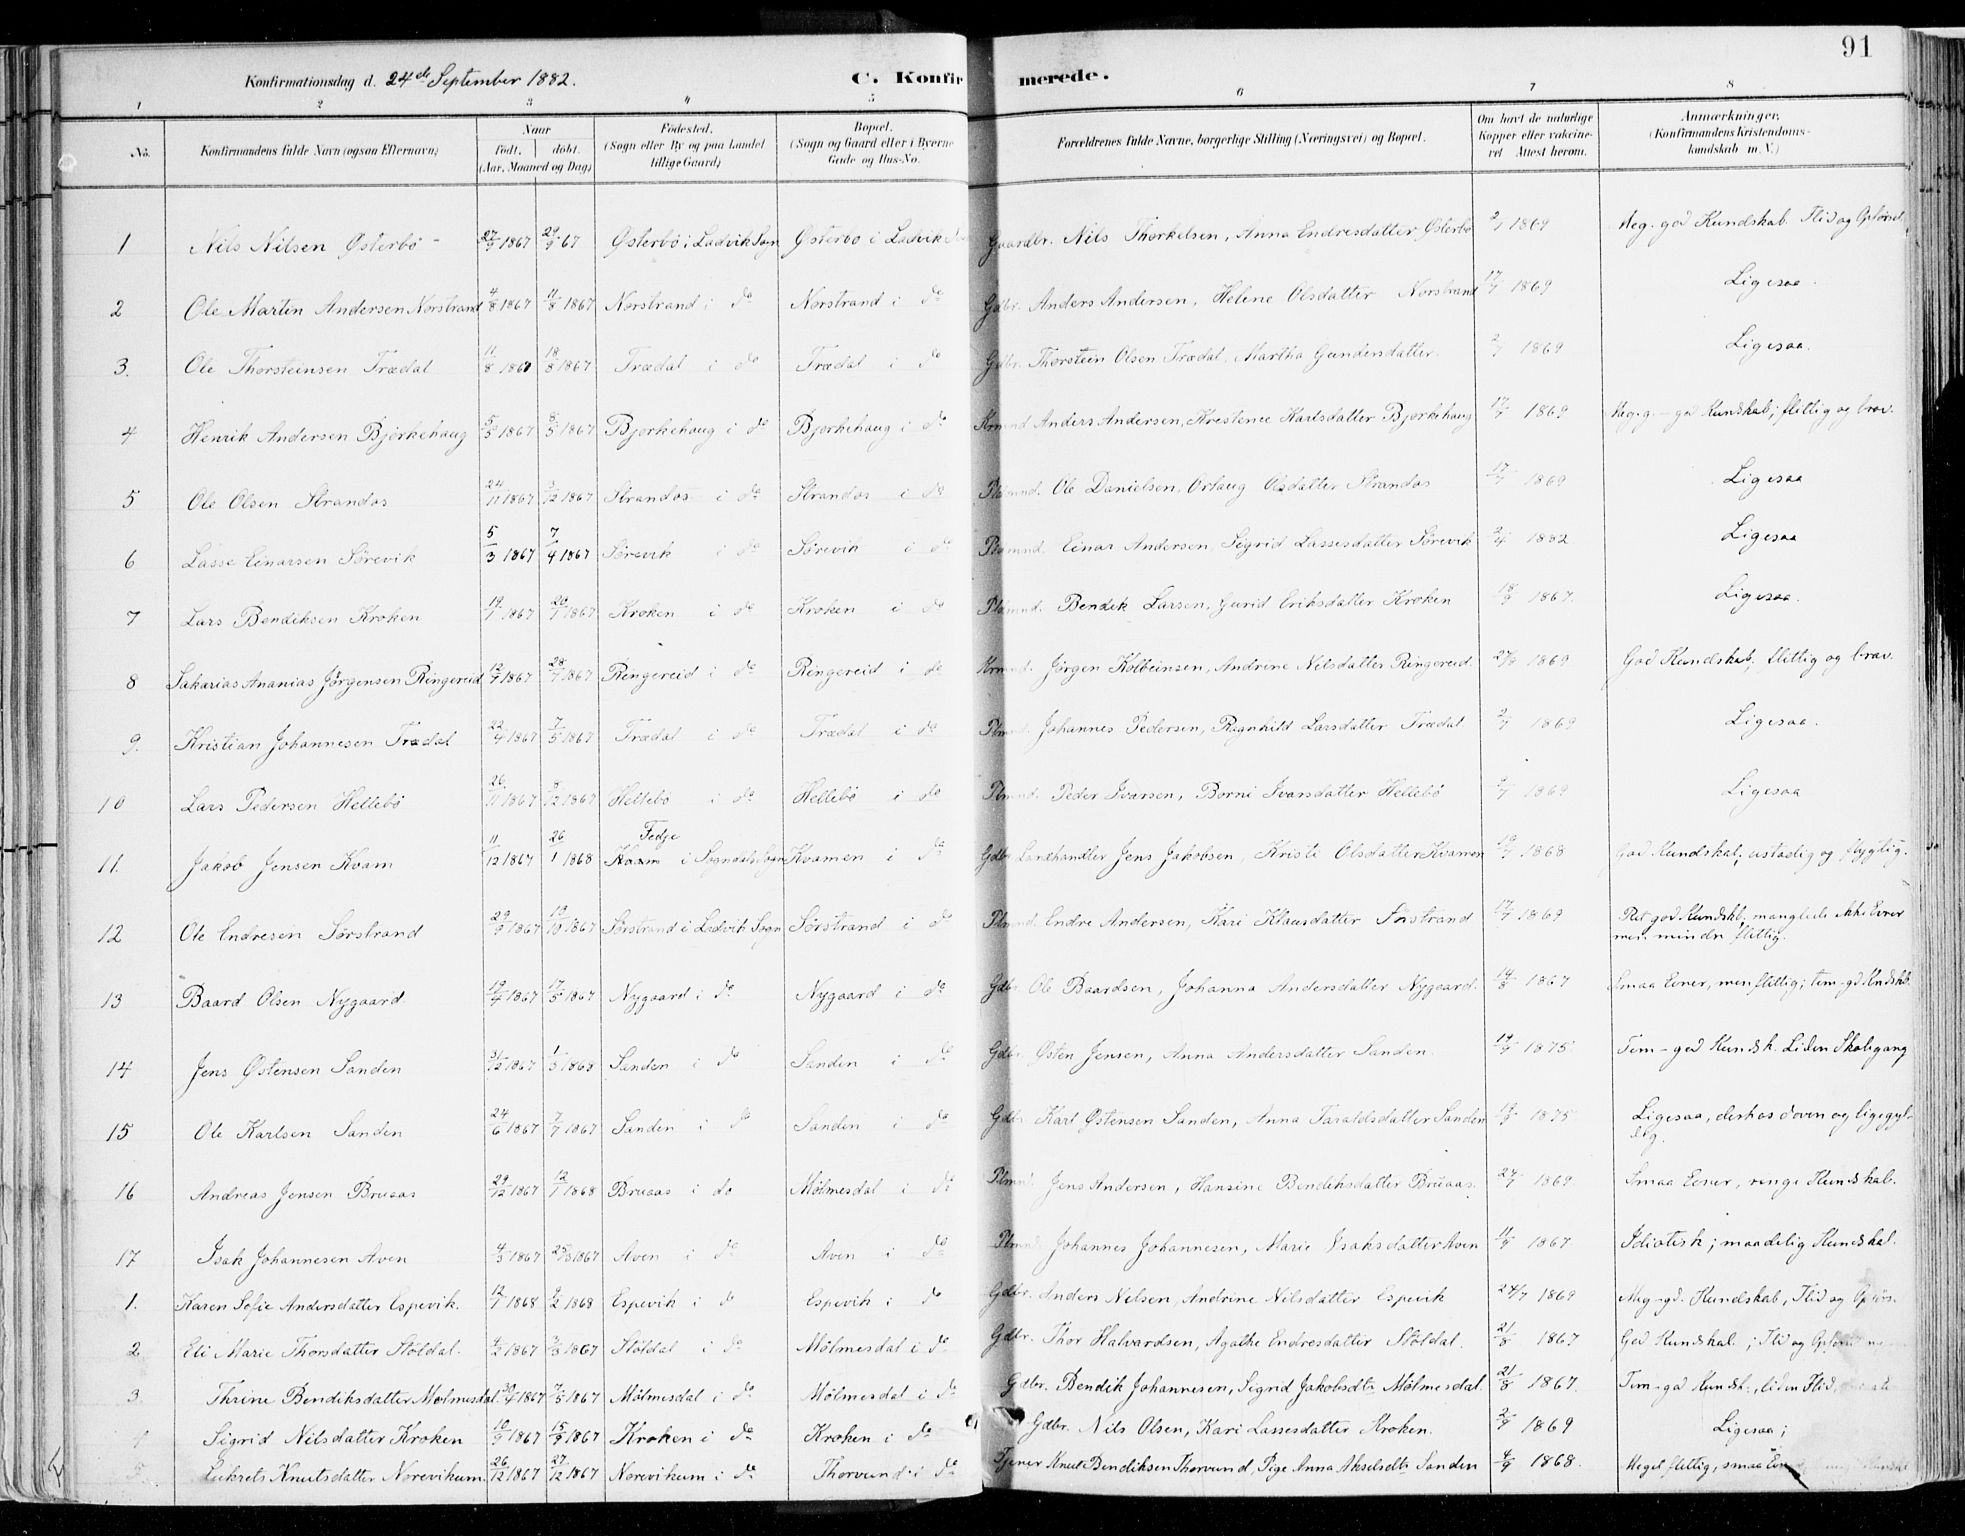 91
Konfirmationsdag d. 24de September 1882. C. Konfirmerede.
1 2 3 4 5 6 7 8
No. Konfirmandens fulde Navn (ogsaa Efternavn) Naar født, døbt. (Aar, Maaned og Dag) Fødested. (Sogn eller By og paa Landet tillige Gaard) Bopæl. (Sogn og Gaard eller i Byerne Gade og Hus-No. Forældrenes fulde Navne, borgerlige Stilling (Næringsvei) og Bopæl. Om havt de naturlige Kopper eller vakcineret. Attest herom. Anmærkninger. (Konfirmandens Kristendomskundskab m. V.)
1 Nils Nilsen Østerbö 27/5 1867 29/9 67 Østerbö i Ladvik Sogn Østerbö i Ladvik Gaardbr. Nils Thorkelsen, Anna Endresdatter Østerbö 2/7 1869 Meg. god Kundskab. Flid og Opførsel
2 Ole Martin Andersen Norstrand 4/8 1867 11/8 1867 Norstrand i do Norstrand i do Gdbr. Anders Andersen, Helene Olsdatter Norstrand 17/7 1869 Ligesaa.
3. Ole Thorsteinsen Trædal 11/8 1867 18/8 1867 Trædal i do Trædal i do Gdbr. Thorstein Olsen Trædal, Martha Gundersdatter. 2/7 1869 Ligesaa.
4 Henrik Andersen Björkehaug 5/5 1867 8/5 1867 Bjørkehaug i do Bjørkehaug i do Krmnd Anders Andersen, Kristence Karlsdatter Bjørkehaug 17/7 1869 Meg. g. - god Kundskab; flittig og brav.
5 Ole Olsen Strandos 24/11 1867 3/12 1867 Strandos i do Strandos i do Plmnd. Ole Danielsen, Orlaug Olsdatter Strandos 17/7 1869 Ligesaa
6 Lasse Einarsen Sørevik 5/3 1867 7/4 1867 Sørevik i do Sørevik i do Plmnd. Einar Andersen, Sigrid Lassesdatter Sørevik 2/4 1882 Ligesaa
7 Lars Bendiksen Kroken 19/7 1867 20/7 1867 Kroken i do Kroken i do Plmnd. Bendik Larsen, Gurid Eriksdatter Kroken 18/9 1867. Ligesaa.
8 Sakarias Ananias Jørgensen Ringereid 12/7 1867 28/7 1867 Ringereid i do Ringereid i do Krmnd. Jørgen Kolbeinsen, Andrine Nilsdatter Ringereid. 27/8 1869 God Kundskab, flittig og brav.
9. Kristian Johannesen Trædal 22/4 1867 7/5 1867 Trædal i do Trædal i do Plmnd. Johannes Pedersen, Ragnhild Larsdatter Trædal 2/7 1869 Ligesaa.
10 Lars Pedersen Hellebö 26/11 1867 8/12 1867 Hellebö i do Hellebö i do Plmnd. Peder Ivarsen, Borni Ivarsdatter Hellebö 2/7 1869 Ligesaa
11. Jakob Jensen Kvam 11/12 1867 26/1 1868 Fedje Kvam i Sogndals Sogn Kvamen i do Gdbr Landhandler Jens Jakobsen, Kristi Olsdatter Kvamen 19/7 1868 God Kundskab; ustadig og flygtig.
12 Ole Endresen Sörstrand 29/9 1867 19/10 1867 Sørstrand i Ladvik Sogn Sørstrand i do Plmnd. Endre Andersen, Kari Klausdatter Sørstrand 17/7 1869 Ret god Kundskb, manglede ikke Evner
men mindre flittig.
13 Baard Olsen Nygaard 19/4 1867 17/5 1867 Nygaard i do Nygaard i do Gdbr Ole Baardsen, Johanna Andersdatter Nygaard. 14/8 1867 Smaa Evner, men flittig; tem-gd Kndskb.
14 Jens Østensen Sanden 31/12 1867 1/5 1868 Sanden i do Sanden i do Gdbr. Østen Jensen, Anna Andersdatter Sanden 19/9 1875 Tem-god Kundsk. Liden Skolegang
15 Ole Karlsen Sanden 24/6 1867 7/7 1867 Sanden i do Sanden i do Gdbr Karl Østensen Sanden, Anna Taraldsdatter Sanden 19/9 1875 Ligesaa, derhos doven og ligegyl-
dig.
16 Andreas Jensen Bruaas 29/12 1867 12/1 1868 Bruaas i do Mølmesdal i do Plmnd. Jens Andersen, Hansine Bendiksdatter Bruaas. 27/7 1869 Smaa Evner, ringe Kundskab.
17 Isak Johannesen Aven 4/3 1867 25/3 1867 Aven i do Aven i do Plmnd. Johannes Johannesen, Marie Isaksdatter Aven 11/9 1867 Idiotisk; maadelig Kundskab.
1. Karen Sofie Andersdatter Espevik. 12/1 1868 9/2 1868 Espevik i do Espevik i do Gdbr. Anders Nilsen, Andrine Nilsdatter Espevik 27/7 1869 Meg-gd. Kundskab, Flid og Opförs.
2 Eli Marie Thorsdatter Stöldal. 4/2 1867 3/3 1867 Stöldal i do Mølmesdal i do Gdbr. Thor Halvardsen, Agathe Endresdatter Stöldal. 21/8 1867 God Kundskab; Flid og Opførsel
3 Thrine Bendiksdatter Mølmesdal. 30/4 1867 7/5 1867 Mølmesdal i do Mølmesdal i do Gdbr. Bendik Johannesen, Sigrid Jakobsdtr Mølmesdal. 21/8 1867. Tem-gd Kundsk., liden Flid,
4 Sigrid Nilsdatter Kroken 10/9 1867 15/9 1867 Kroken i do Kroken i do Gdbr. Nils Olsen, Kari Lassesdatter Kroken. 2/7 1869 Ligesaa;
5 Lukrets Knutsdatter Norevikum. 26/12 1867 27/12 1867 Norevikum i do Thorvund i do Tjener Knut Bendiksen Thorvund, Pige Anna Akselsdtr Sanden 4/9 1868. Meget flittig, smaa